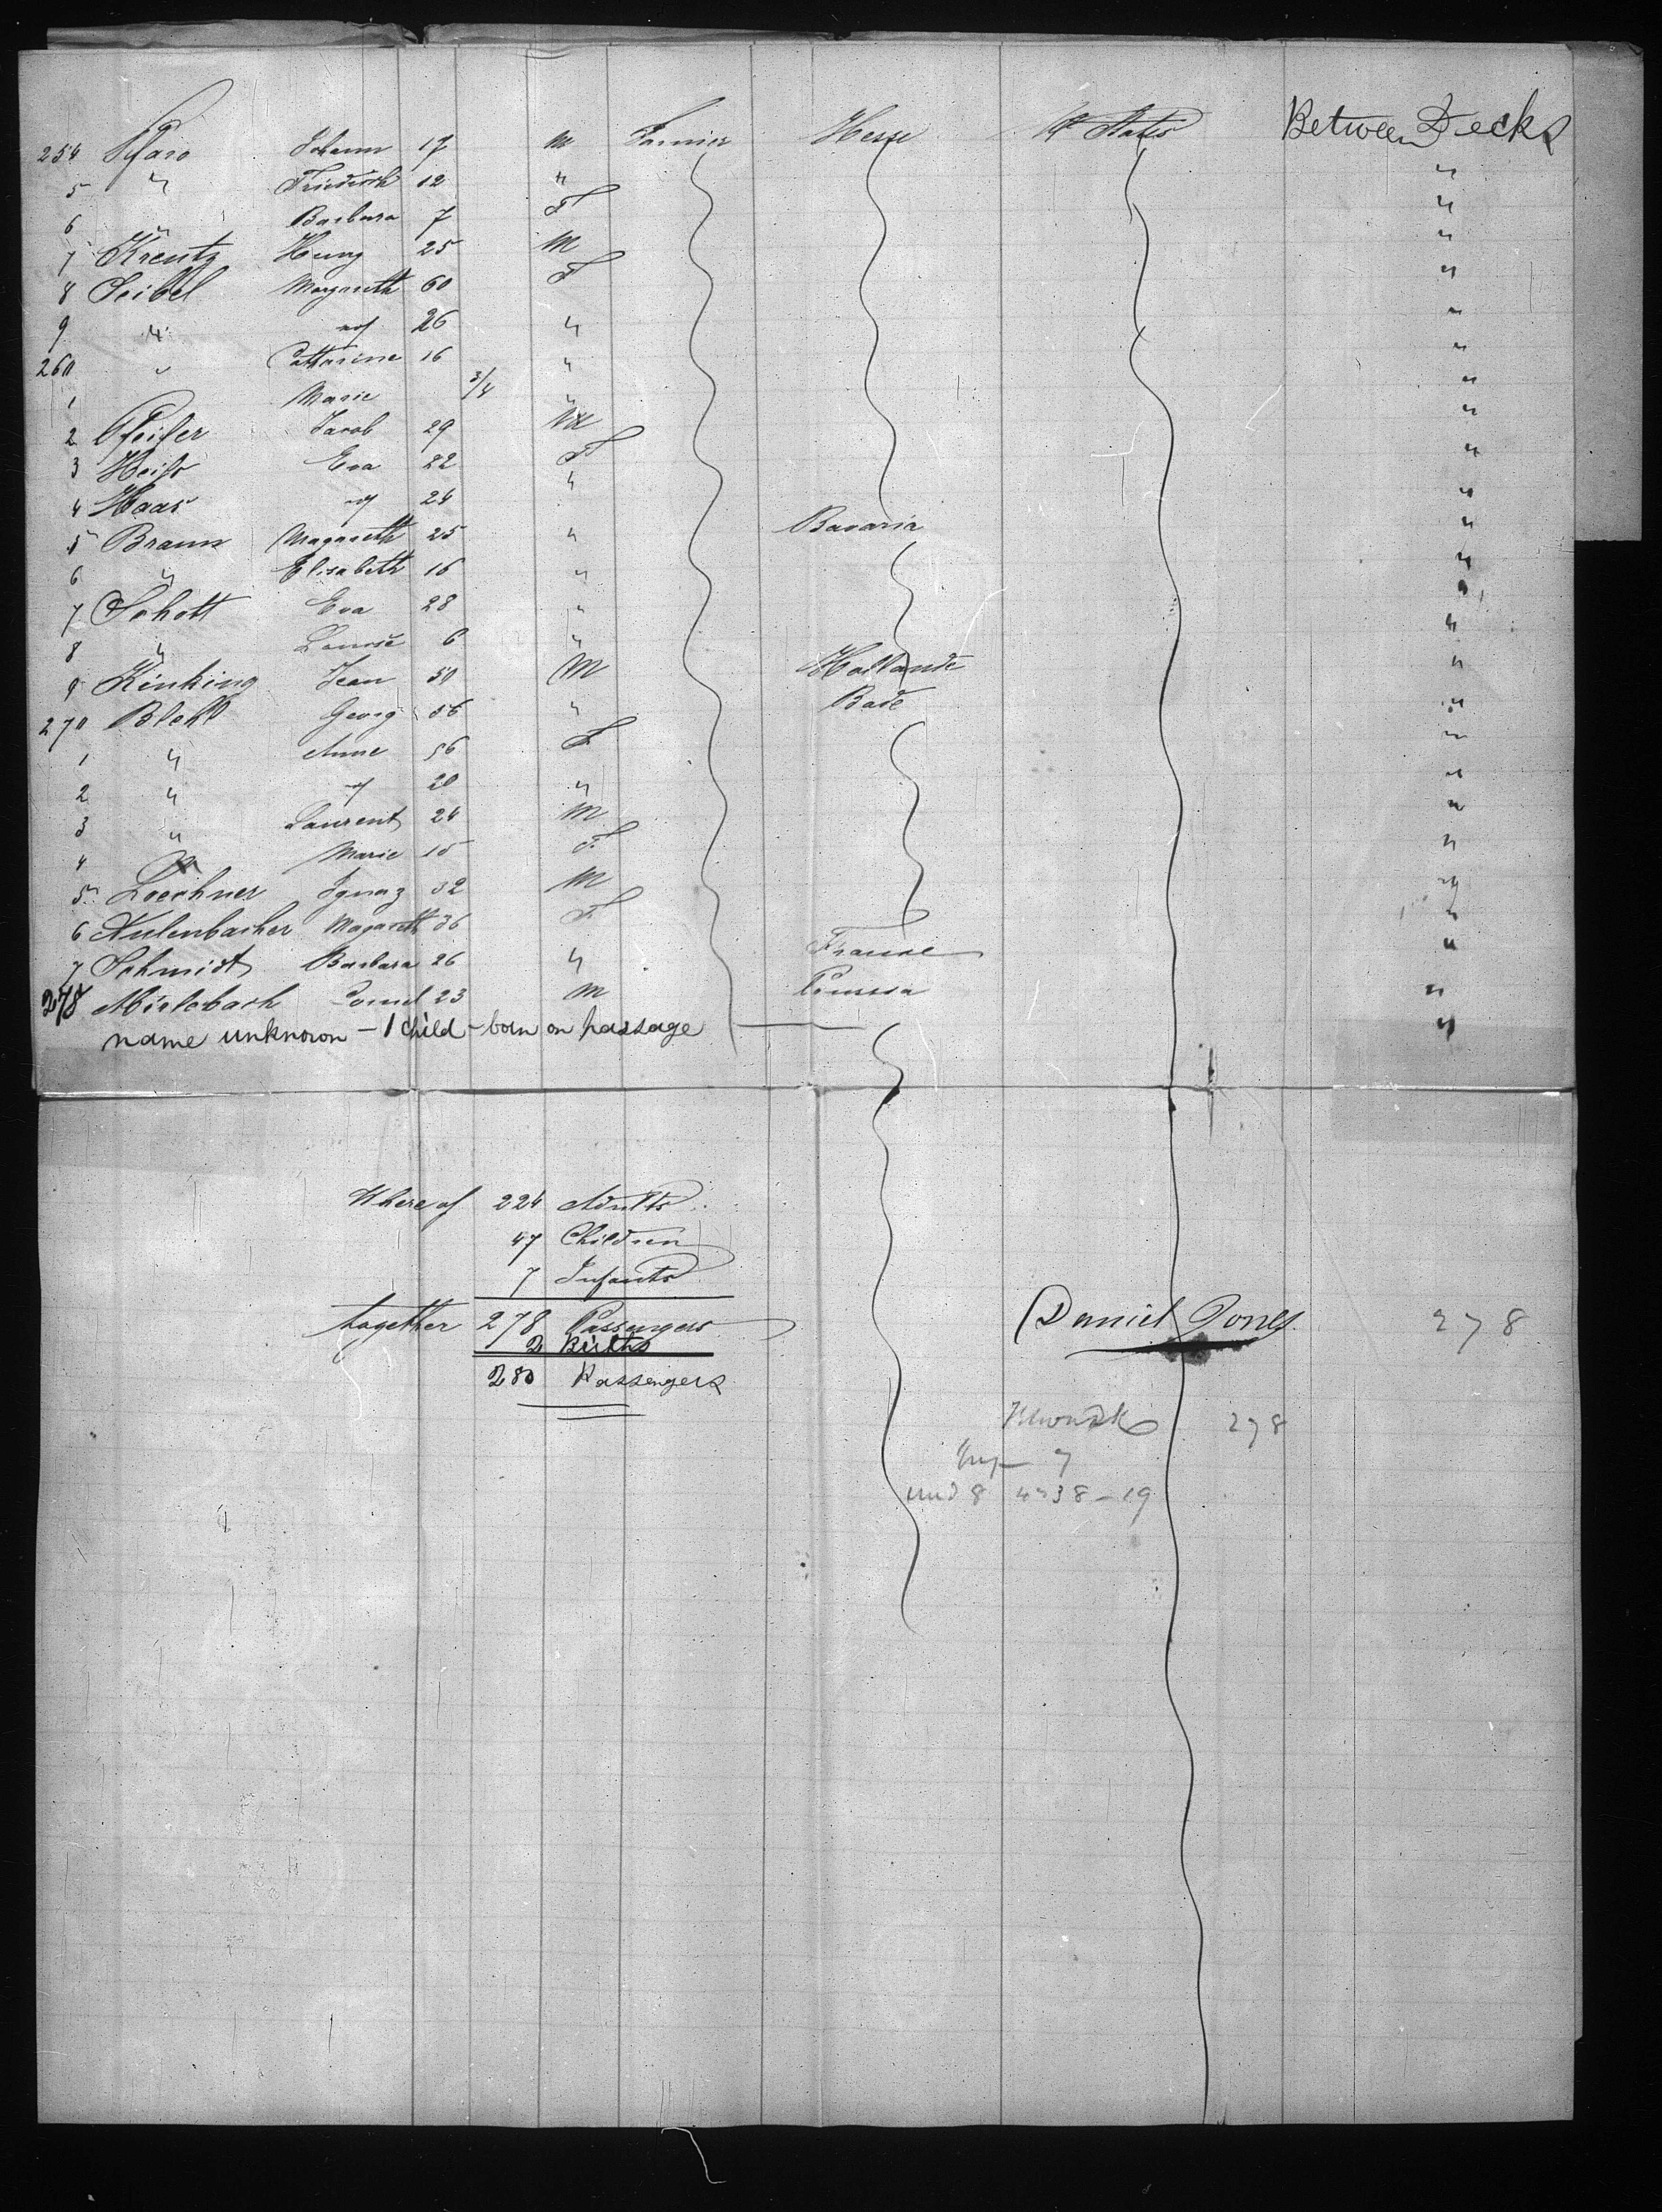 254 Pfaro Johann 17 M Farmier Hesse U States Between Decks
5 " Friedrich 12 " "
6 " Barbara 7 F "
7 Kreutz Heinr 25 M "
8 Seibel Margareth 60 F "
9 " " 26 " "
260 " Catharine 16 " "
1 Marie 3/4 " "
2 Pfeifer Jacob 29 M "
3 Heiss Eva 22 F "
4 Haas " 24 " "
5 Braun Magareth 25 " Bavaria "
6 " Elisabeth 16 " "
7 Schott Eva 28 " "
8 " Louise 6 " "
9 Kinking Jean 50 M Hollande "
270 Blehl Georg 56 " Bade "
1 " Anne 56 F "
2 " " 20 " "
3 " Laurent 24 M "
4 " Marie 15 F "
5 Loechner Ignaz 32 M "
6 Aulenbacher Magareth 36 F "
7 Schmidt Barbara 26 " France "
278 Mislebach 23 M Prussia "
name unknown - 1 child - born on passage "
Where of 224 Adults
47 Children
7 Infants
together 278 Passengers Daniel Jones 278
2 Births
280 Passengers
278
7
und 8 38 - 19